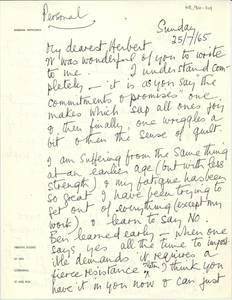 Personal
BARBARA HEPWORTH
Sunday
25/7/65
My dearest Herbert
It was wonderful of you to write
to me. I understand com-
pletely — it is as you say the
commitments & promises one
makes which sap all ones joy
& then finally, one wriggles a
bit & then the sense of guilt
I am suffering from the same thing
at an earlier age (but with less
strength) & my fatigue has been
so great I have been trying to
get out of everything (except my
work) & learn to say NO.
Ben learned early — when one
says yes all the time to imposs-
ible demands it requires a
fierce resistance I think you
have it in you now & can just